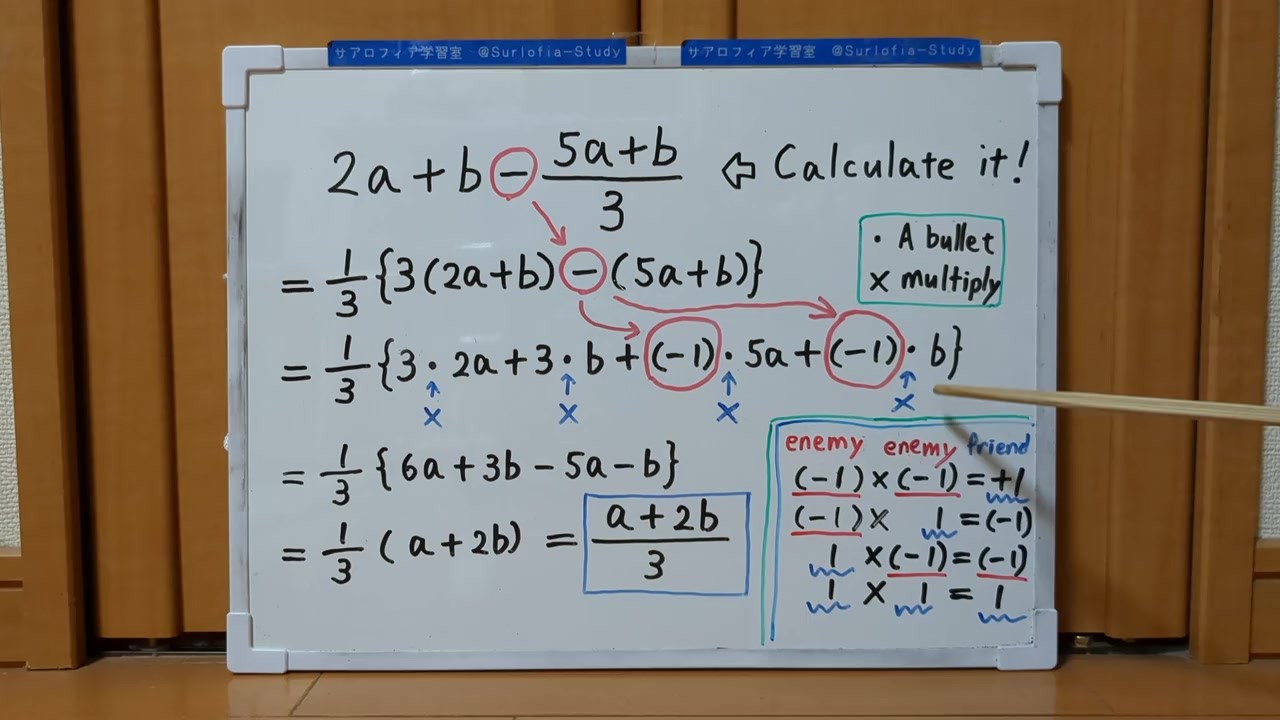 サアロフィア学習室 @Surlofia-Study サアロフィア学習室 @Surlofia-Study
2a+b−(5a+b)/3 ⇦ Calculate it!
= 1/3{3(2a+b)−(5a+b)}
・ A bullet
× multiply
= 1/3{3・2a+3・b+(−1)・5a+(−1)・b}
↑ ↑ ↑ ↑
× × × ×
= 1/3{6a+3b−5a−b}
= 1/3(a+2b) = (a+2b)/3
enemy enemy friend
(−1)×(−1)=+1
(−1)× 1=(−1)
1 ×(−1)=(−1)
1 × 1 = 1